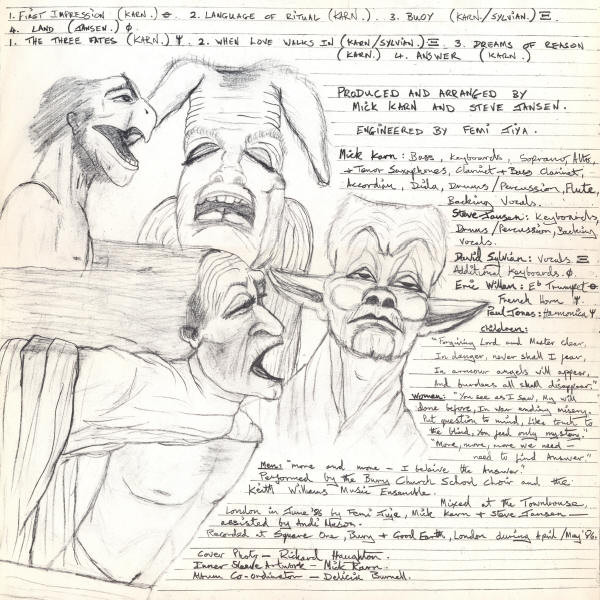 1. FIRST IMPRESSION (KARN.) ɵ. 2. LANGUAGE OF RITUAL (KARN.). 3. BUOY (KARN./SYLVIAN.) Ξ.
4. LAND (JANSEN.) Ø
1. THE THREE FATES (KARN.) Ψ. 2. WHEN LOVE WALKS IN (KARN/SYLVIAN.) Ξ. 3. DREAMS OF REASON
(KARN.) 4. ANSWER (KARN.)
PRODUCED AND ARRANGED BY
MICK KARN AND STEVE JANSEN.
ENGINEERED BY FEMI JIYA.
Mick Karn: Bass, Keyboards, Soprano, Alto,
+ Tenor Saxophones, Clarinet + Bass Clarinet,
Accordian, Dida, Drums/Percussion, Flute,
Backing Vocals.
Steve Jansen: Keyboards,
Drums/Percussion, Backing
Vocals.
David Sylvian: Vocals Ξ
Additional Keyboards. Ø.
Eric Willem: Eb Trumpet ɵ
French Horn Ψ
Paul Jones: Harmonica Ψ
Children:
"Forgiving Lord and Master clear,
In danger, never shall I fear,
In armour angels will appear,
And burdens all shall disappear."
Women: "You see as I saw, My will
done before, In war ending misery.
Put question to mind, Like touch to
the blind, You feel only mystery."
"More, more, more we need —
need to find Answer."
Men: "more and more — I believe the Answer."
Performed by the Bury Church School Choir and the
Keith Willems Music Ensemble.
Mixed at the Townhouse,
London in June '86 by Femi Jiya, Mick Karn + Steve Jansen —
assisted by Andi Mason.
Recorded at Square One, Bury + Good Earth, London during April/May '86.
Cover Photo — Richard Haughton.
Inner Sleeve Artwork — Mick Karn.
Album Co-ordinator — Delicia Burnell.